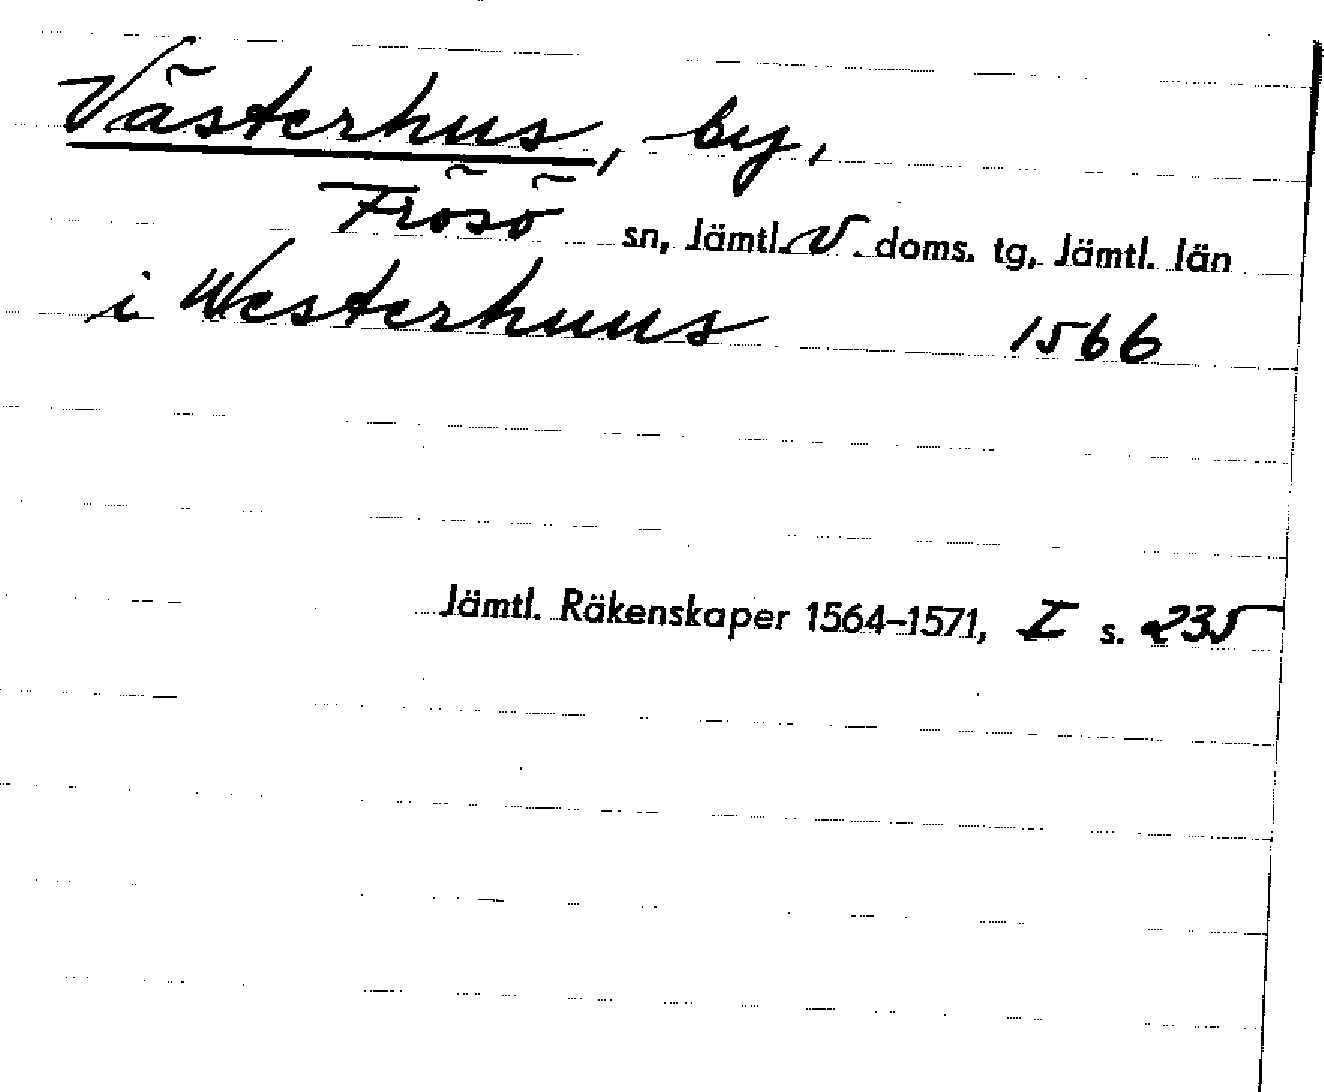 Västerhus, by,
Frösö sn, Jämtl. V. doms. tg, Jämtl. län
i Westerhuus 1566
Jämtl. Räkenskaper 1564-1571, I s. 235